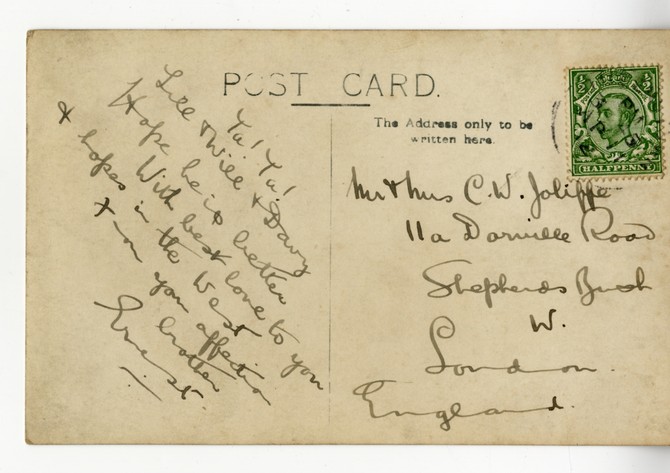 POST CARD.
The Address only to be
written here.
½ ½
HALFPENNY
Ya! Ya!
Lill & Will & Davy
Hope he is better
With best love to you
& hopes in the West
from you affection
brother
Ernest.
Mr & Mrs C.W. Joliffe
11a Road
Shepherds Bush
W.
London.
England.